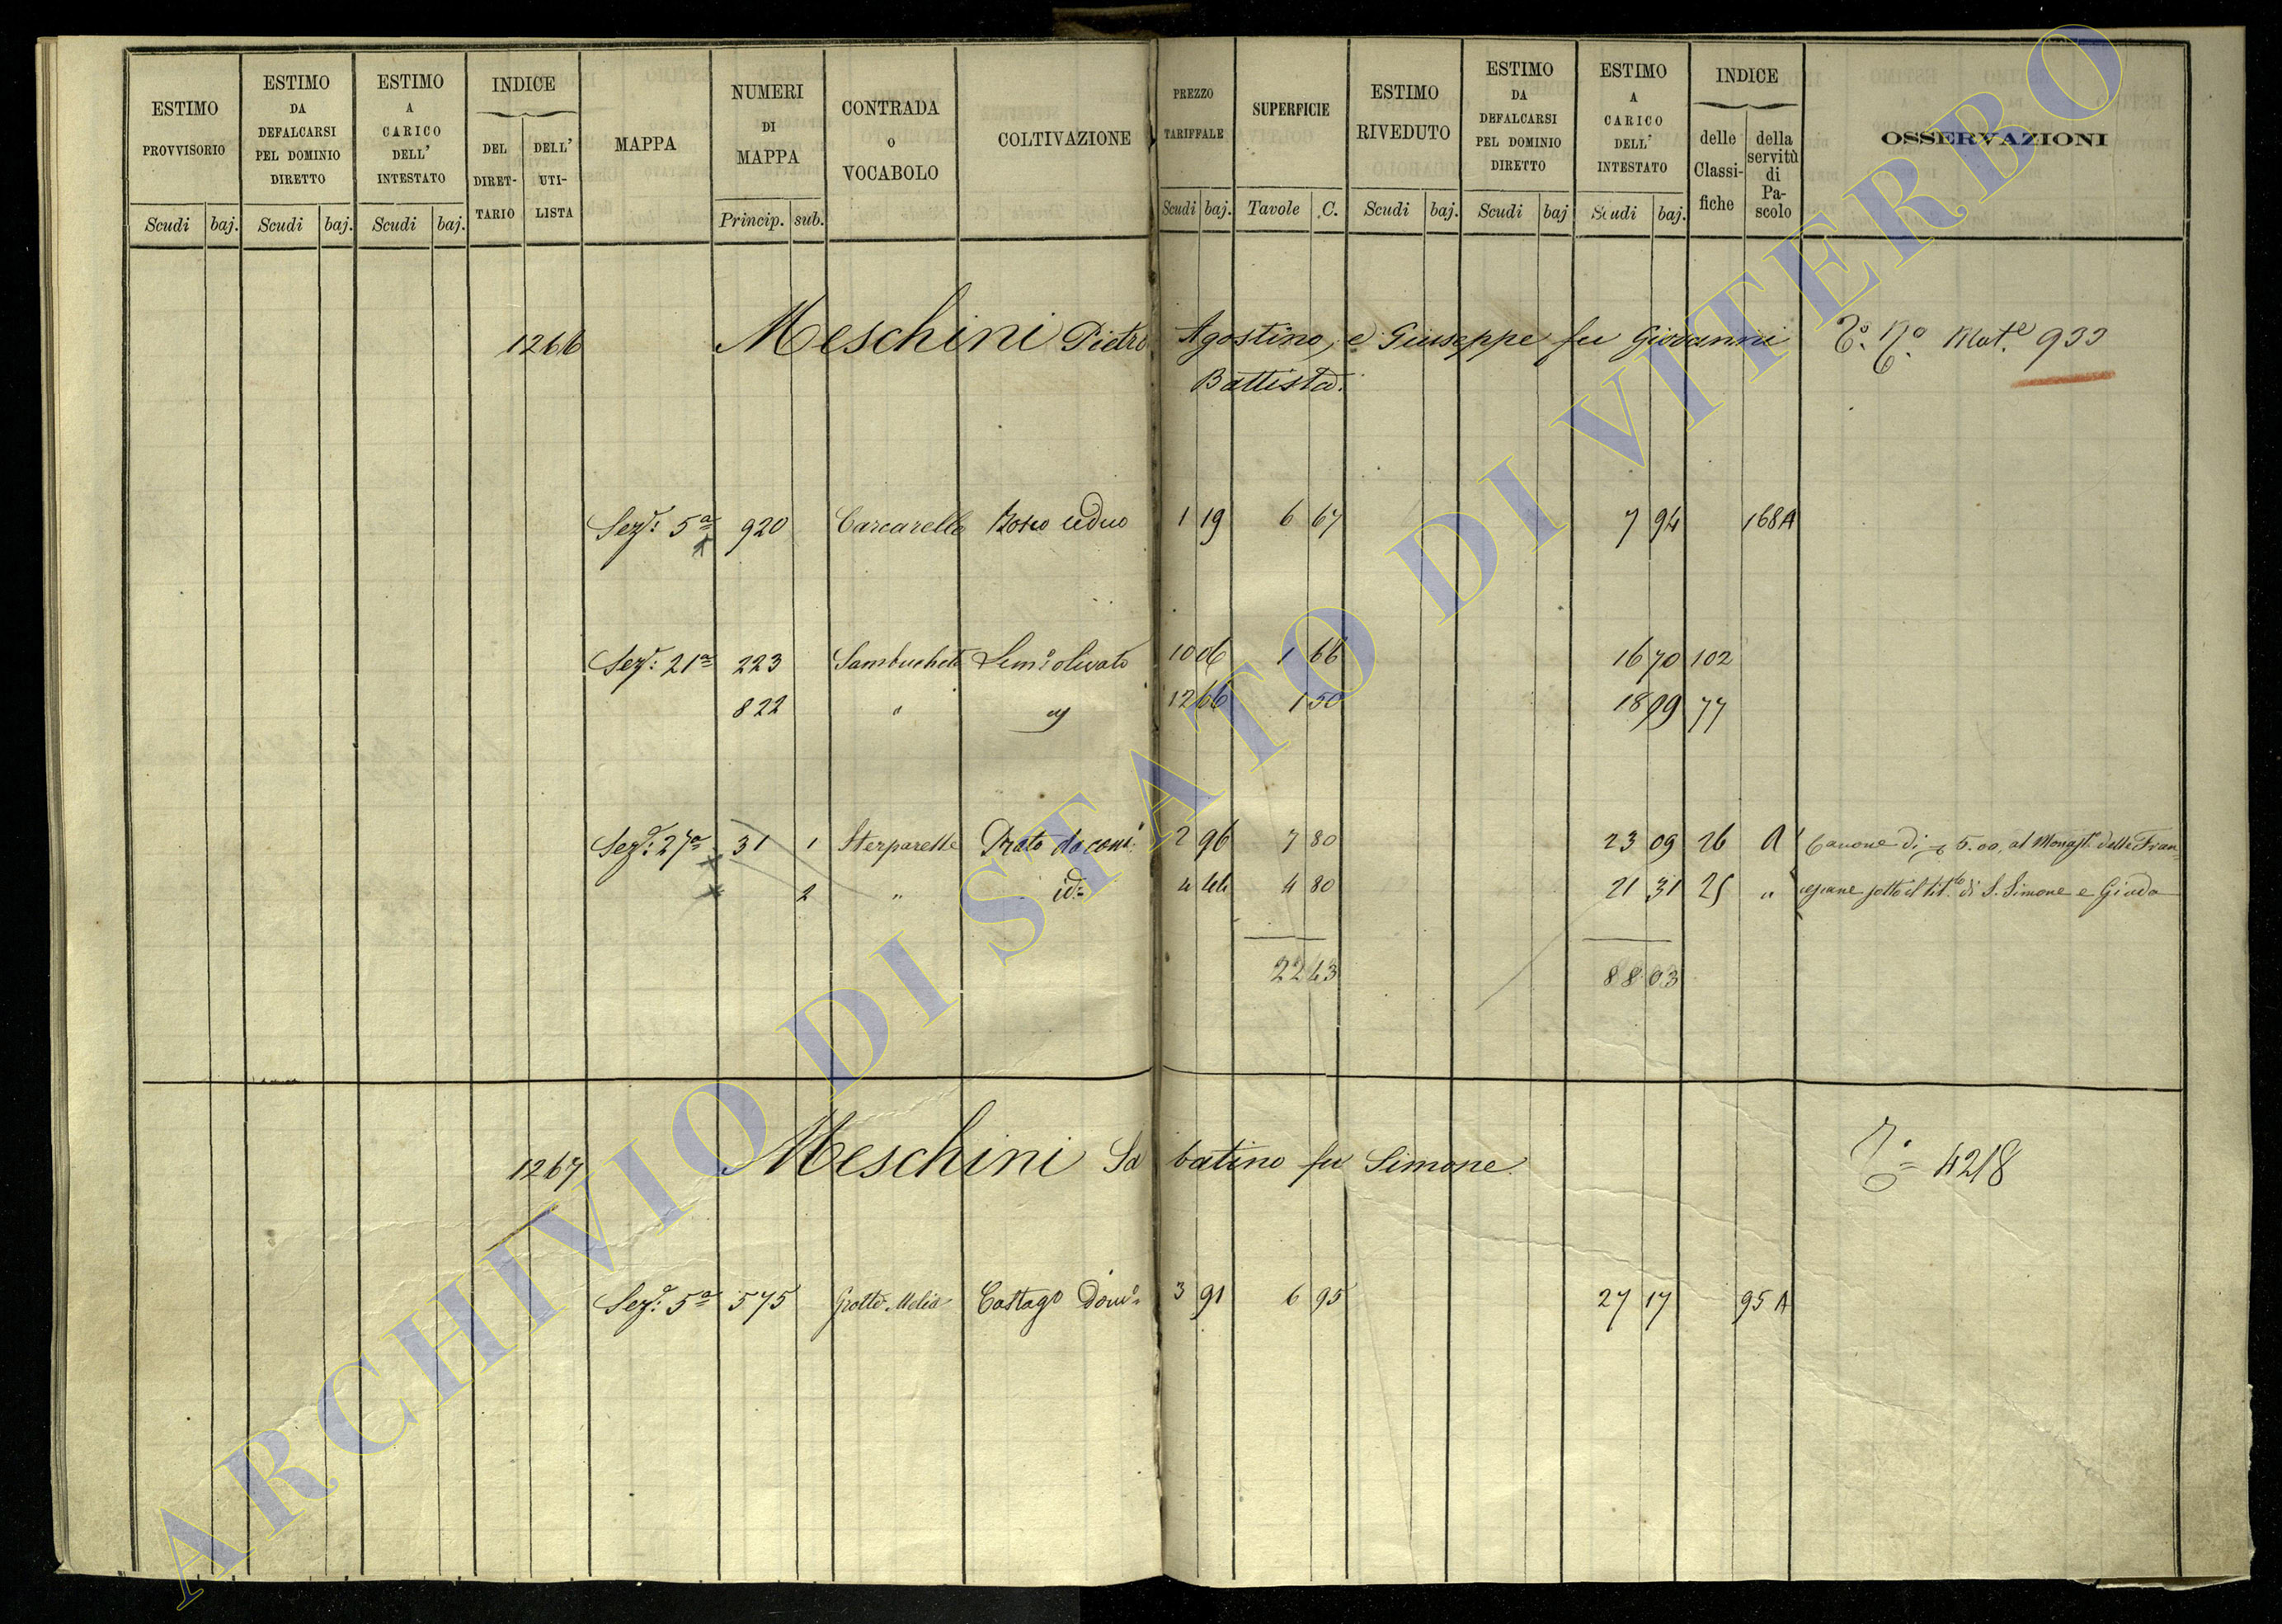 ESTIMO PROVVISORIO Scudi baj.
ESTIMO DA DEFALCARSI PEL DOMINIO DIRETTO Scudi baj.
ESTIMO A CARICO DELL' INTESTATO Scudi baj.
INDICE DEL DIRET-TARIO DELL' UTI-LISTA
MAPPA
NUMERI DI MAPPA Princip. sub.
CONTRADA O VOCABOLO
COLTIVAZIONE
PREZZO TARIFFALE Scudi baj.
SUPERFICIE Tavole C.
ESTIMO RIVEDUTO Scudi baj.
ESTIMO DA DEFALCARSI PEL DOMINIO DIRETTO Scudi baj
ESTIMO A CARICO DELL' INTESTATO Scudi baj.
INDICE delle Classi-fiche della servitù di Pa-scolo
OSSERVAZIONI
1266 Meschini Pietro Agostino, e Giuseppe fu Giovanni Mat.e 933
Battista.
Sez.e 5a 920 Carcarelle Bosco ceduo 1 19 6 67 7 94 168 A
Sez.e 21a 223 Sambuchete Sem.o olivato 10 06 1 66 16 70 102
822 " 12 66 1 50 18 99 77
Sez.e 27a 31 1 Sterparelle Prato da 2 96 7 80 23 09 26 A Canone di 5.00, al Monast.o delle Fran=
2 " id= 4 44 4 80 21 31 25 " cescane sotto il tit.lo di S. Simone e Giuda
22 43 88 03
1267 Meschini Sabatino fu Simone. 4218
Sez.e 5a 575 Grotte Melia Castag.o Dom.o 3 91 6 95 27 17 95 A
ARCHIVIO DI STATO DI VITERBO